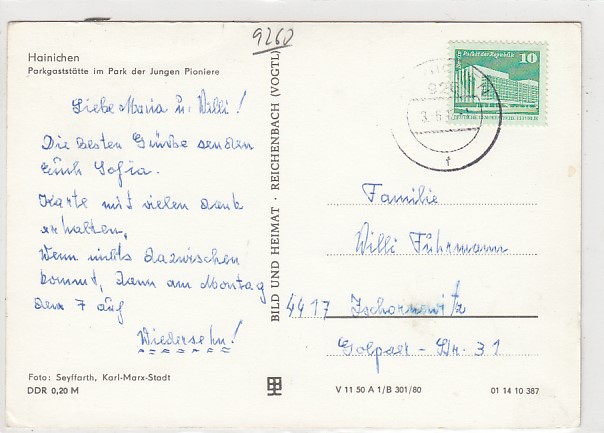 9262
Hainichen
Parkgaststätte im Park der Jungen Pioniere
Liebe Maria u. Willi!
Die besten Grüße senden
Euch Sofia.
Karte mit vielen Dank
erhalten,
Wenn nichts dazwischen
kommt, dann am Montag
den 7 auf
Wiedersehn!
Foto: Seyffarth, Karl-Marx-Stadt
DDR 0,20 M
BILD UND HEIMAT · REICHENBACH (VOGTL)
Palast der Republik
10
DDR
DEUTSCHE DEMOKRATISCHE REPUBLIK
Familie
Willi Fuhrmann
4417 Zschornewitz
Golpaer-Str. 31
V 11 50 A 1/B 301/80
01 14 10 387